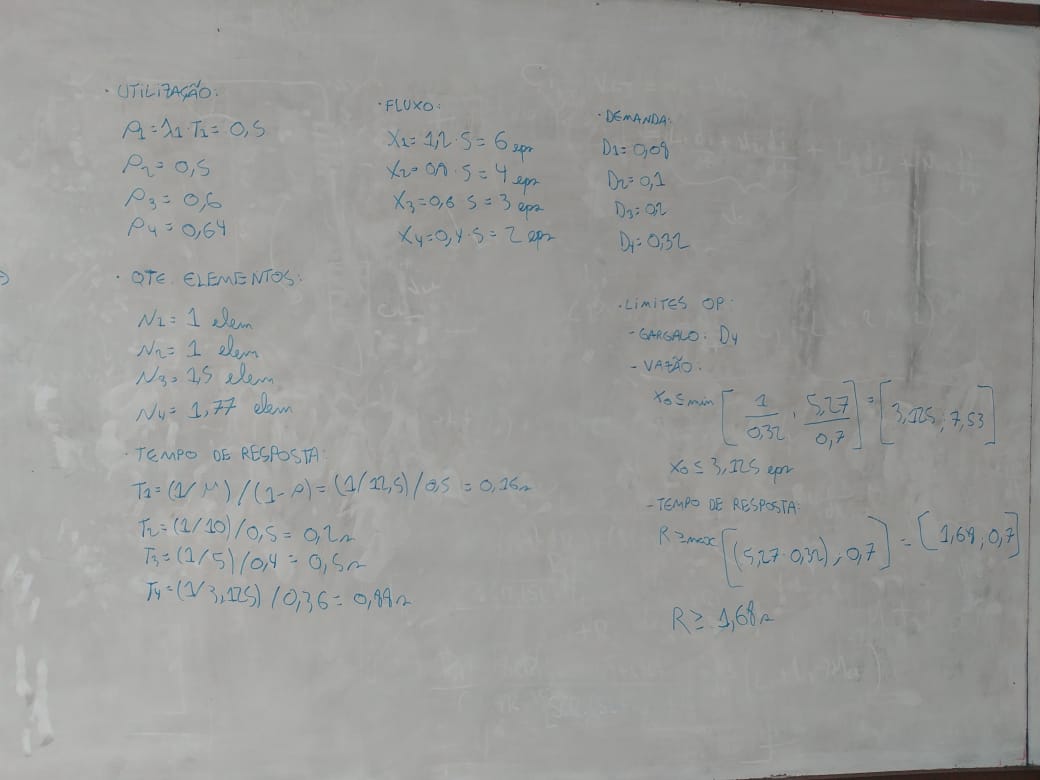 · UTILIZAÇÃO:
ρ1 = λ1 · T1 = 0,5
ρ2 = 0,5
ρ3 = 0,6
ρ4 = 0,64
· QTE. ELEMENTOS:
N1 = 1 elem
N2 = 1 elem
N3 = 1,5 elem
N4 = 1,77 elem
· TEMPO DE RESPOSTA:
T1 = (1/μ)/(1-ρ) = (1/12,5)/0,5 = 0,16s
T2 = (1/10)/0,5 = 0,2s
T3 = (1/5)/0,4 = 0,5s
T4 = (1/3,125)/0,36 = 0,88s
· FLUXO:
X1 = 1,2 · 5 = 6 eps
X2 = 0,8 · 5 = 4 eps
X3 = 0,6 · 5 = 3 eps
X4 = 0,4 · 5 = 2 eps
· DEMANDA:
D1 = 0,08
D2 = 0,1
D3 = 0,2
D4 = 0,32
· LIMITES OP:
- GARGALO: D4
- VAZÃO:
X0 ≤ min [1/0,32 , 5,27/0,7] = [3,125 ; 7,53]
X0 ≤ 3,125 eps
- TEMPO DE RESPOSTA:
R ≥ max [(5,27·0,32), 0,7] = [1,68, 0,7]
R ≥ 1,68s